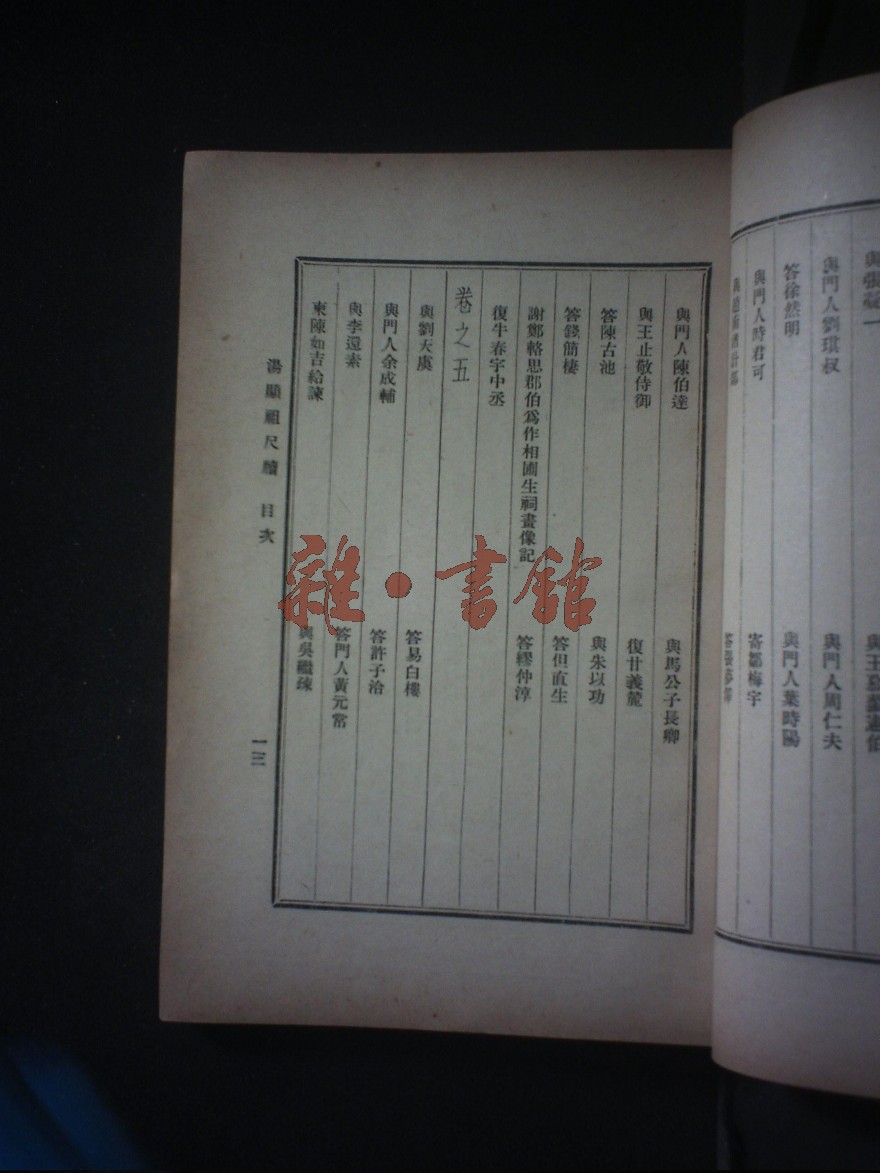 與門人劉琪叔
與門人周仁夫
答徐然明
與門人葉時陽
與門人時君可
寄鄒梅宇
與門人陳伯達
與馬公子長卿
與王止敬侍御
復甘義麓
答陳古池
與朱以功
答錢簡棲
答但直生
謝鄭輅思郡伯爲作相圃生祠畫像記
復牛春宇中丞
答繆仲淳
卷之五
與劉天虞
答易白樓
與門人余成輔
答許子洽
與李還素
答門人黃元常
柬陳如吉給諫
與吳繼疎
湯顯祖尺牘 目次
一三
雜·書館